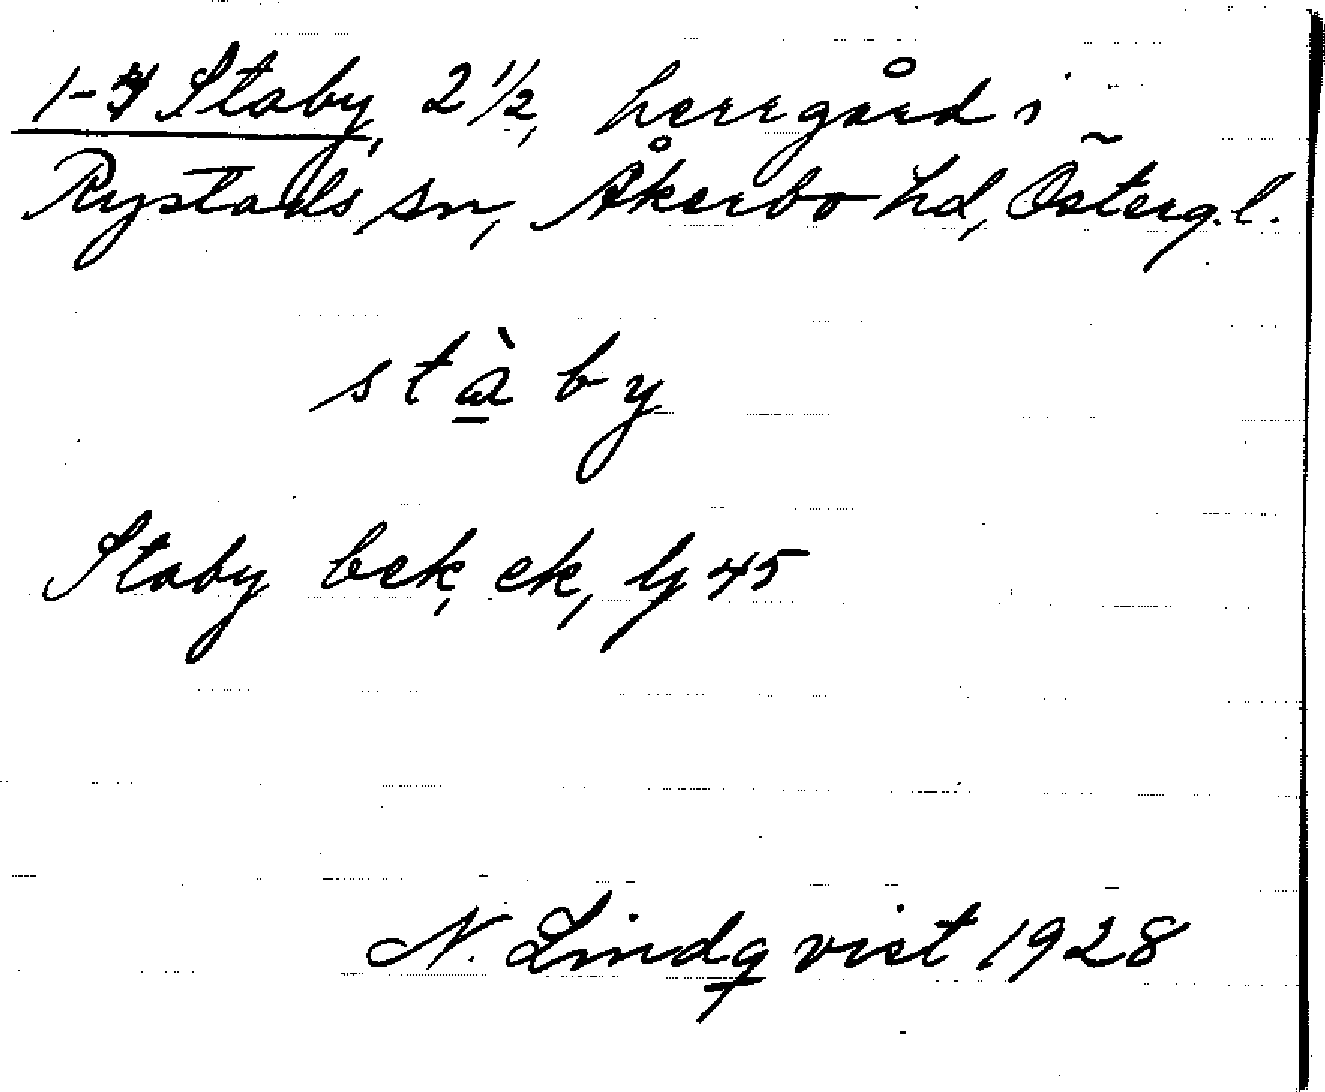 1-4 Staby, 2 1/2, herrgård i
Rystads sn, Åkerbo hd, Österg. l.
stà by
Staby bek, ek, lj 45
N. Lindqvist 1928